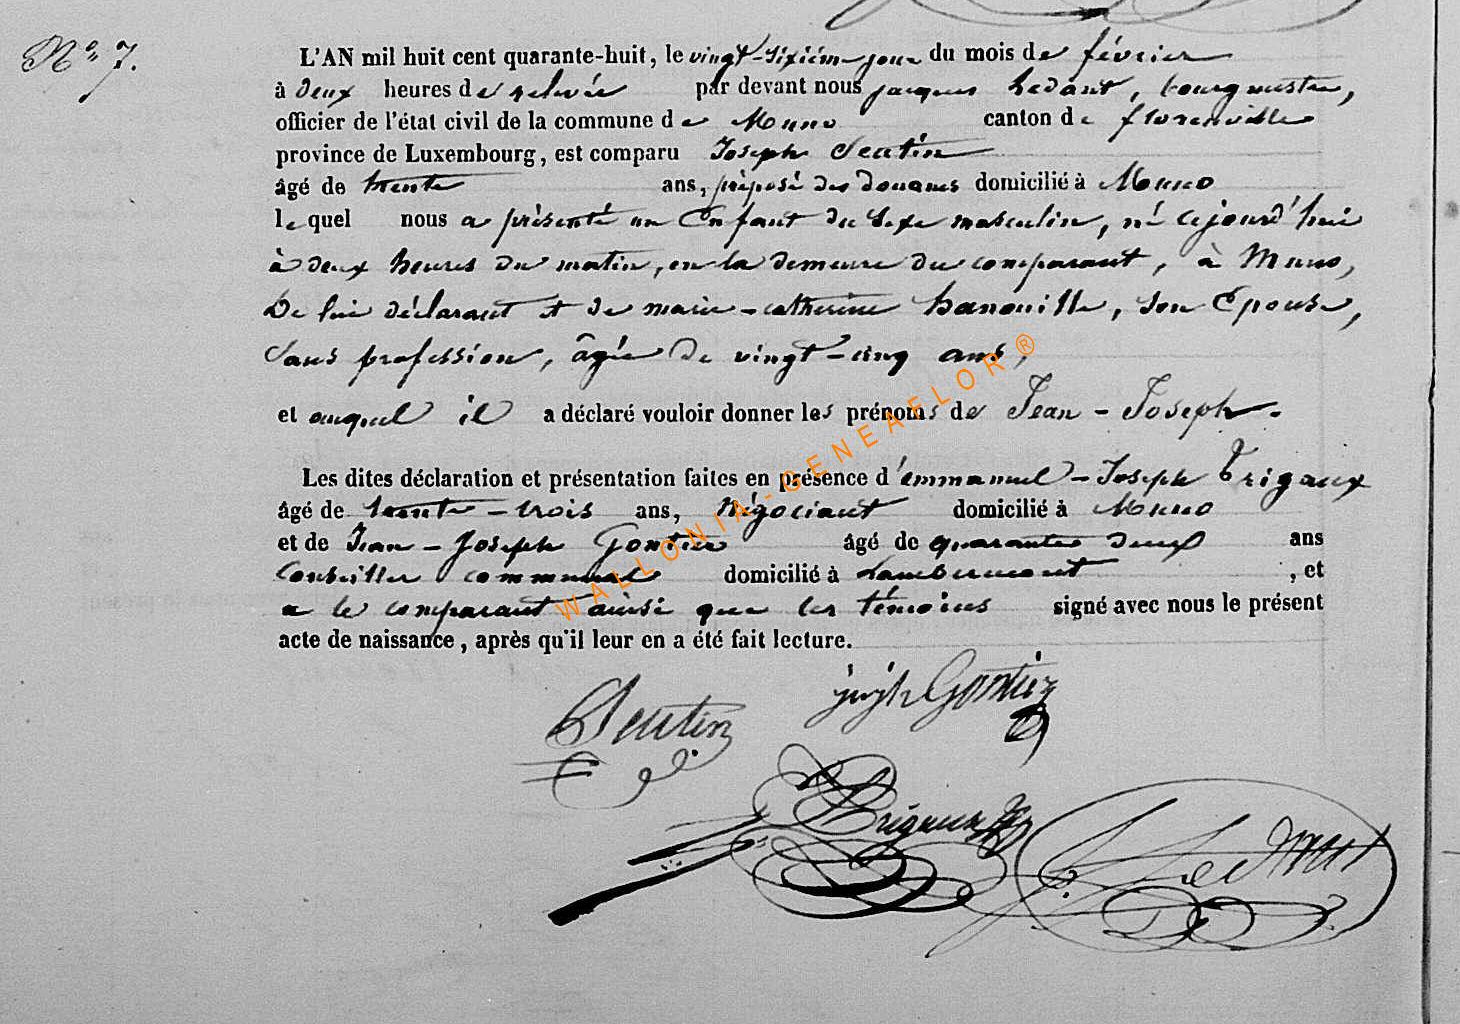 N° 7.
L'AN mil huit cent quarante-huit, le vingt-sixième jour du mois de février
à deux heures de relevée par devant nous jacques hedant, bourgmestre,
officier de l'état civil de la commune de Muno canton de florenville
province de Luxembourg, est comparu Joseph Seutin
âgé de trente ans, préposé des douanes domicilié à Muno
lequel nous a présenté un Enfant du sexe masculin, né cejourd'hui
à deux heures du matin, en la demeure du comparant, à Muno,
De lui déclarant et de marie-catherine hanouille, son Epouse,
Sans profession, âgée de vingt-cinq ans,
et auquel il a déclaré vouloir donner les prénoms de Jean-Joseph.
Les dites déclaration et présentation faites en présence d'emmanuel-Joseph Trigaux
âgé de trente-trois ans, Négociant domicilié à Muno
et de Jean-Joseph Gontier âgé de quarante deux ans
Conseiller communal domicilié à Lambermont, et
a le comparant ainsi que les témoins signé avec nous le présent
acte de naissance, après qu'il leur en a été fait lecture.
Seutin
joseph Gontier
Trigaux
WALLONIA-GENEAFLOR®